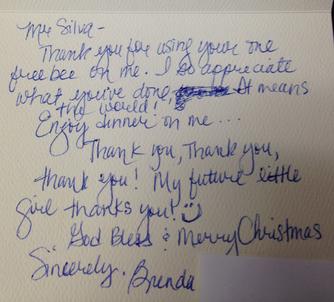 Mr Silva -
Thank you for using your one
free bee on me. I so appreciate
what you've done. It means
the world!
Enjoy dinner on me...
Thank you, Thank you,
thank you! My future little
girl thanks you! :)
God Bless & Merry Christmas
Sincerely. Brenda